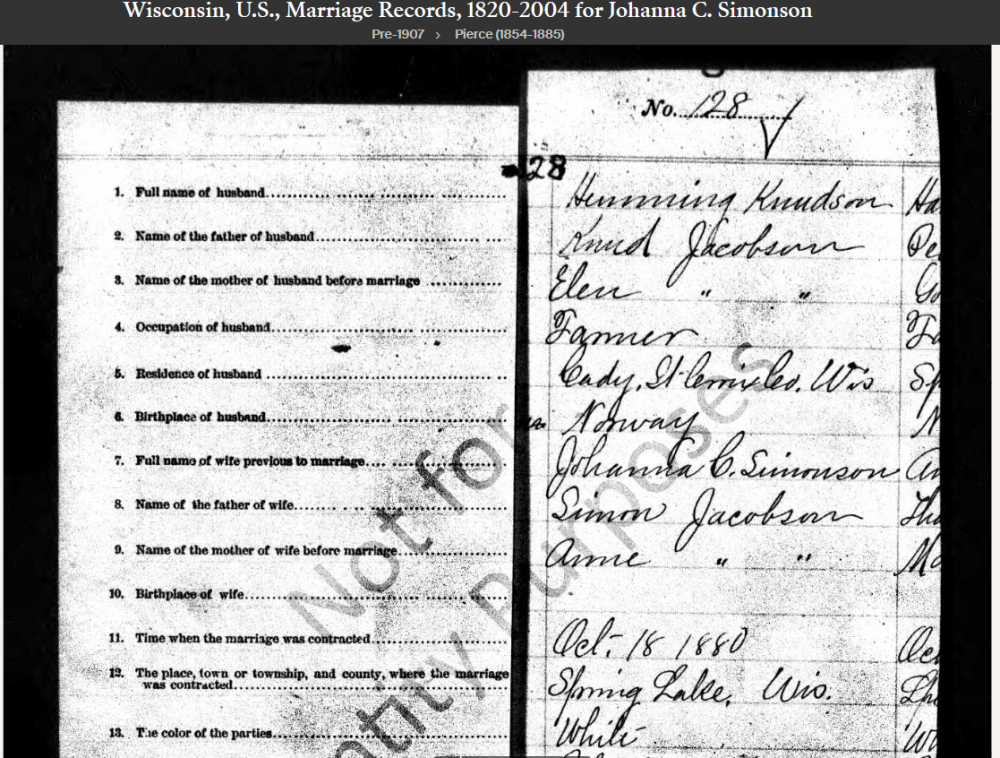 Wisconsin, U.S., Marriage Records, 1820-2004 for Johanna C. Simonson
Pre-1907 > Pierce (1854-1885)
No. 128
28
1. Full name of husband Hemming Knudson Ha
2. Name of the father of husband Knud Jacobson
3. Name of the mother of husband before marriage Elen " "
4. Occupation of husband Farmer Fa
5. Residence of husband Cady, St Croix Co. Wis Sp
6. Birthplace of husband Norway N
7. Full name of wife previous to marriage Johanna C. Simonson
8. Name of the father of wife Simon Jacobson
9. Name of the mother of wife before marriage Anne " "
10. Birthplace of wife
11. Time when the marriage was contracted Oct. 18 1880 Oc
12. The place, town or township, and county, where the marriage
was contracted Spring Lake, Wis.
13. The color of the parties White W
Not for
Purposes